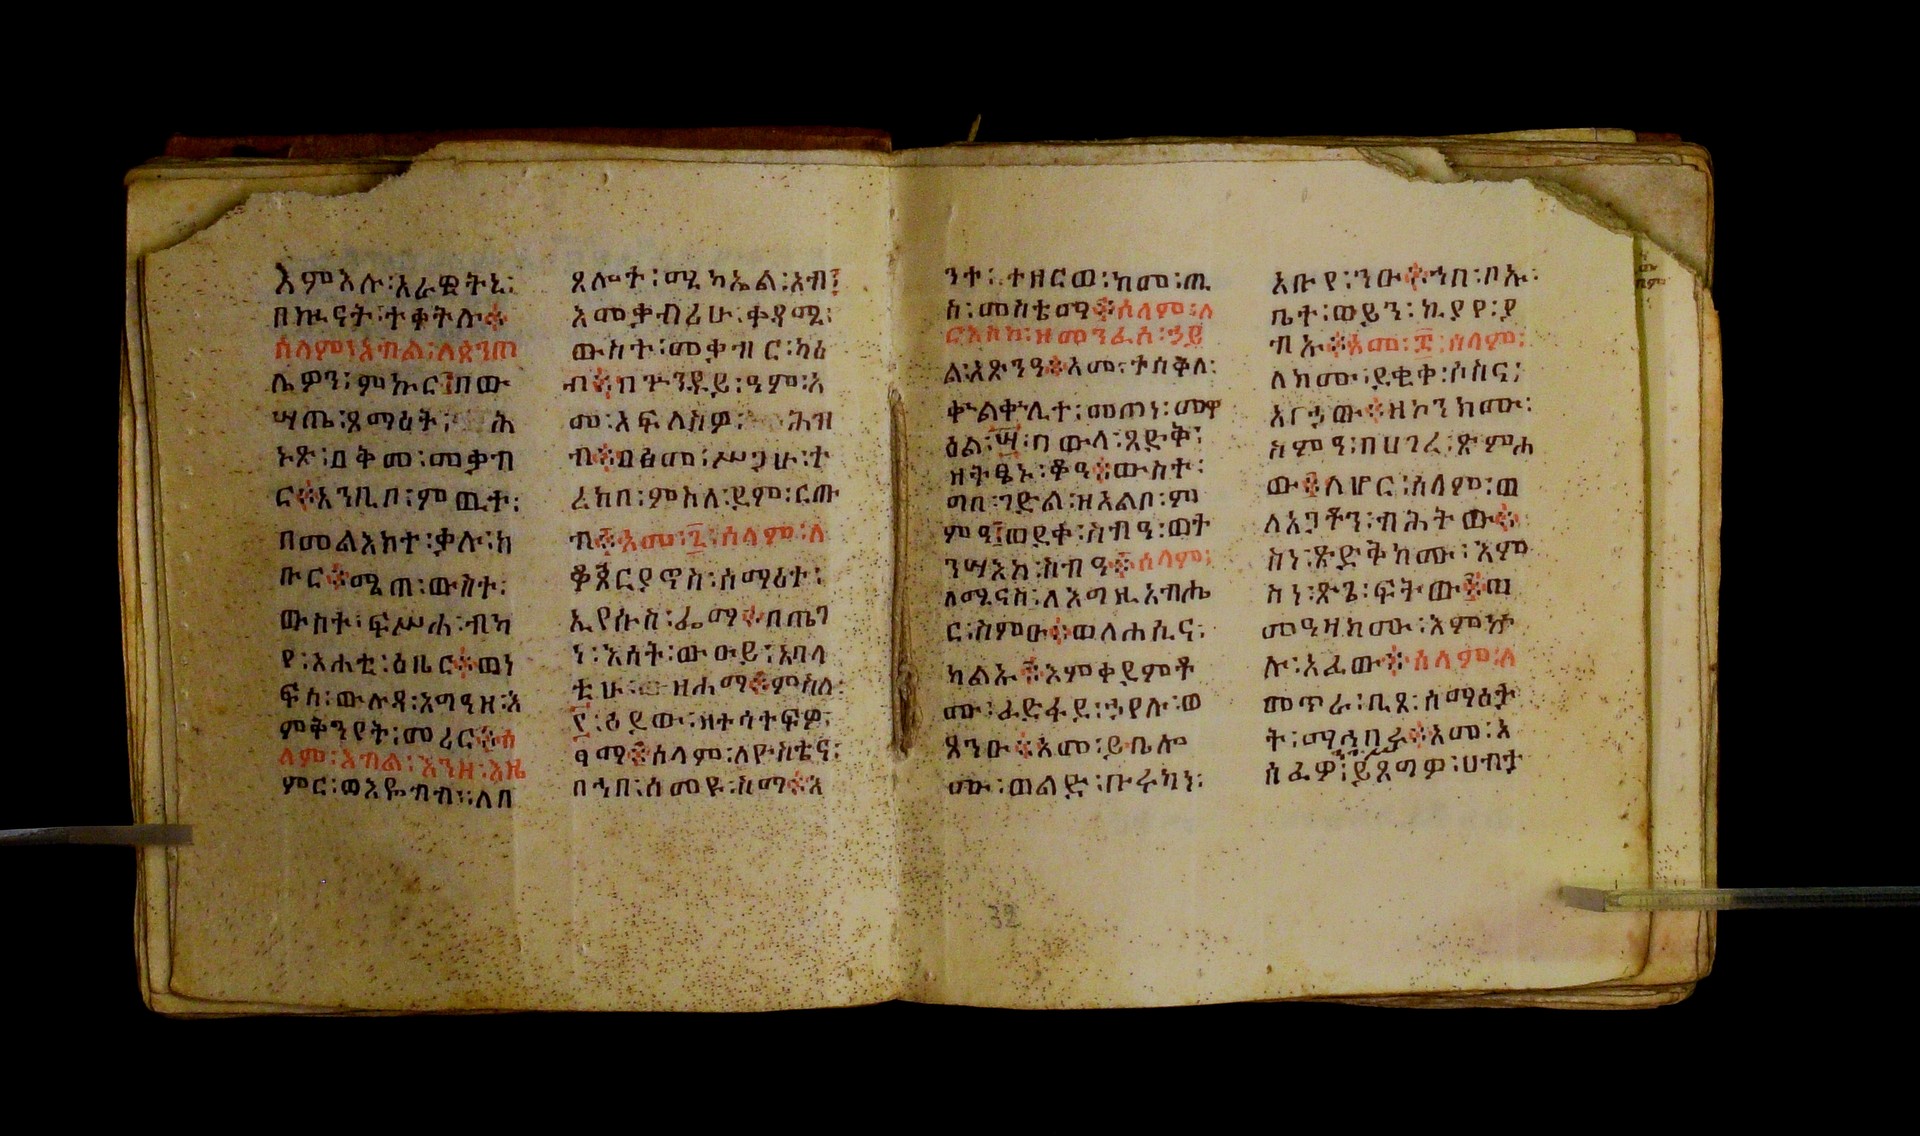 እምእሉ፡አራዊትኒ፡
በኵናት፡ተቀትሉ፨
ሰላም፡እብል፡ለጰንጠ
ሌዎን፤ምኁር፤በው
ሣጤ፡ጾማዕት፡ ሕ
ኑጽ፡በቅመ፡መቃብ
ር፨እንቢቦ፡ምዉት፡
በመልእክተ፡ቃሉ፡ክ
ቡር፨ሚጠ፡ውስተ፡
ውስተ፡ፍሥሐ፡ብካ
የ፡አሐቲ፡ዕዜር፨ወነ
ፍስ፡ውሉዳ፡አግዓዘ፡እ
ምቅንየት፡መሪር፨ሰ
ላም፡እብል፡እንዘ፡እዜ
ምር፡ወእዬብብ፡፡ለበ
ጸሎተ፡ሚካኤል፡አብ፤
እመቃብሪሁ፡ቀዳሚ፡
ውስተ፡መቃብር፡ካዕ
ብ፨ በዓም፡እ
መ፡አፍለስዎ፡ ሕዝ
ብ፨
ረከበ፡ምስለ፡ደም፡ርጡ
ብ፨እመ፡፲፡ሰላም፡ለ
ቆጶርያኖስ፡ሰማዕተ፡
ኢየሱስ፡ፌማ፨በጤገ
ነ፡እሳት፡ውዑይ፡አባላ
ቲሁ፡ ዘሐማ፨ምስለ፡
፻፡ዕደው፡ዘተሳተፍዎ፡
ፃሚ፨ሰላም፡ለዮስቴና፡
በኀበ፡ሰመዩ፡ስማ፨እ
ንተ፡ተዘርወ፡ከመ፡ጢ
ስ፡መስቴማ፨ሰላም፡ለ
ርእስከ፡ዘመንፈሰ፡ኃይ
ል፡አጽንዓ፨እመ፡ተሰቅለ፡
ቍልቍሊተ፡መጠነ፡መዋ
ዕል፡ ውላ፡ጻድቅ፡
ዘትፄኑ፡ቆዓ፨ውስተ፡
ግበ፡ገድል፡ዘእልቦ፡ም
ምዓ፤ወደቀ፡ስብዓ፡ወት
ንሣእከ፡ስብዓ፨ሰላም፡
ለሚናስ፡ለእግዚአብሔ
ር፡ስምዑ፨ወለሐሲና፡
ካልኡ፨እምቀደምቶ
ሙ፡ፈድፋደ፡ኃየሉ፡ወ
ጸንዑ፨እመ፡ይቤሎ
ሙ፡ወልድ፡ቡሩካነ፡
አቡየ፡ንዑ፨ኀበ፡ቦኡ፡
ቤተ፡ወይን፡ኪያየ፡ያ
ብኡ፨እመ፡፲፡ሰላም፡
ለክሙ፡ደቂቀ፡ሶስና፡
አርኃው፨ዘኮንክሙ፡
ስምዓ፡በሀገረ፡ጽምሐ
ው፨ለሆር፡ሰላም፡ወ
ለአጋቶን፡ብሕትው፨
ስነ፡ጽድቅክሙ፡እም
ስነ፡ጽጌ፡ፍትው፨ወ
መዓዛክሙ፡እምኵ
ሉ፡አፈው፨ሰላም፡ለ
መጥራ፡ቢጸ፡ሰማዕታ
ት፡ማኅበራ፨እመ፡አ
ሰፈዎ፤ይጸግዎ፡ሀብታ